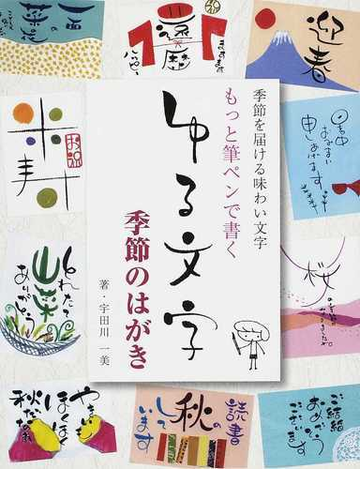 季節を届ける味わい文字
もっと筆ペンで書く
ゆる文字
季節のはがき
著・宇田川 一美
一面
菜の花
還暦
迎春
米寿
お祝
暑中
お見舞い
申しあげます
とれたて
山菜
ありがとう
桜
やきいも
ほくほく
秋だなあ
読書
の秋
して
います
ご結婚
おめでとう
ございます